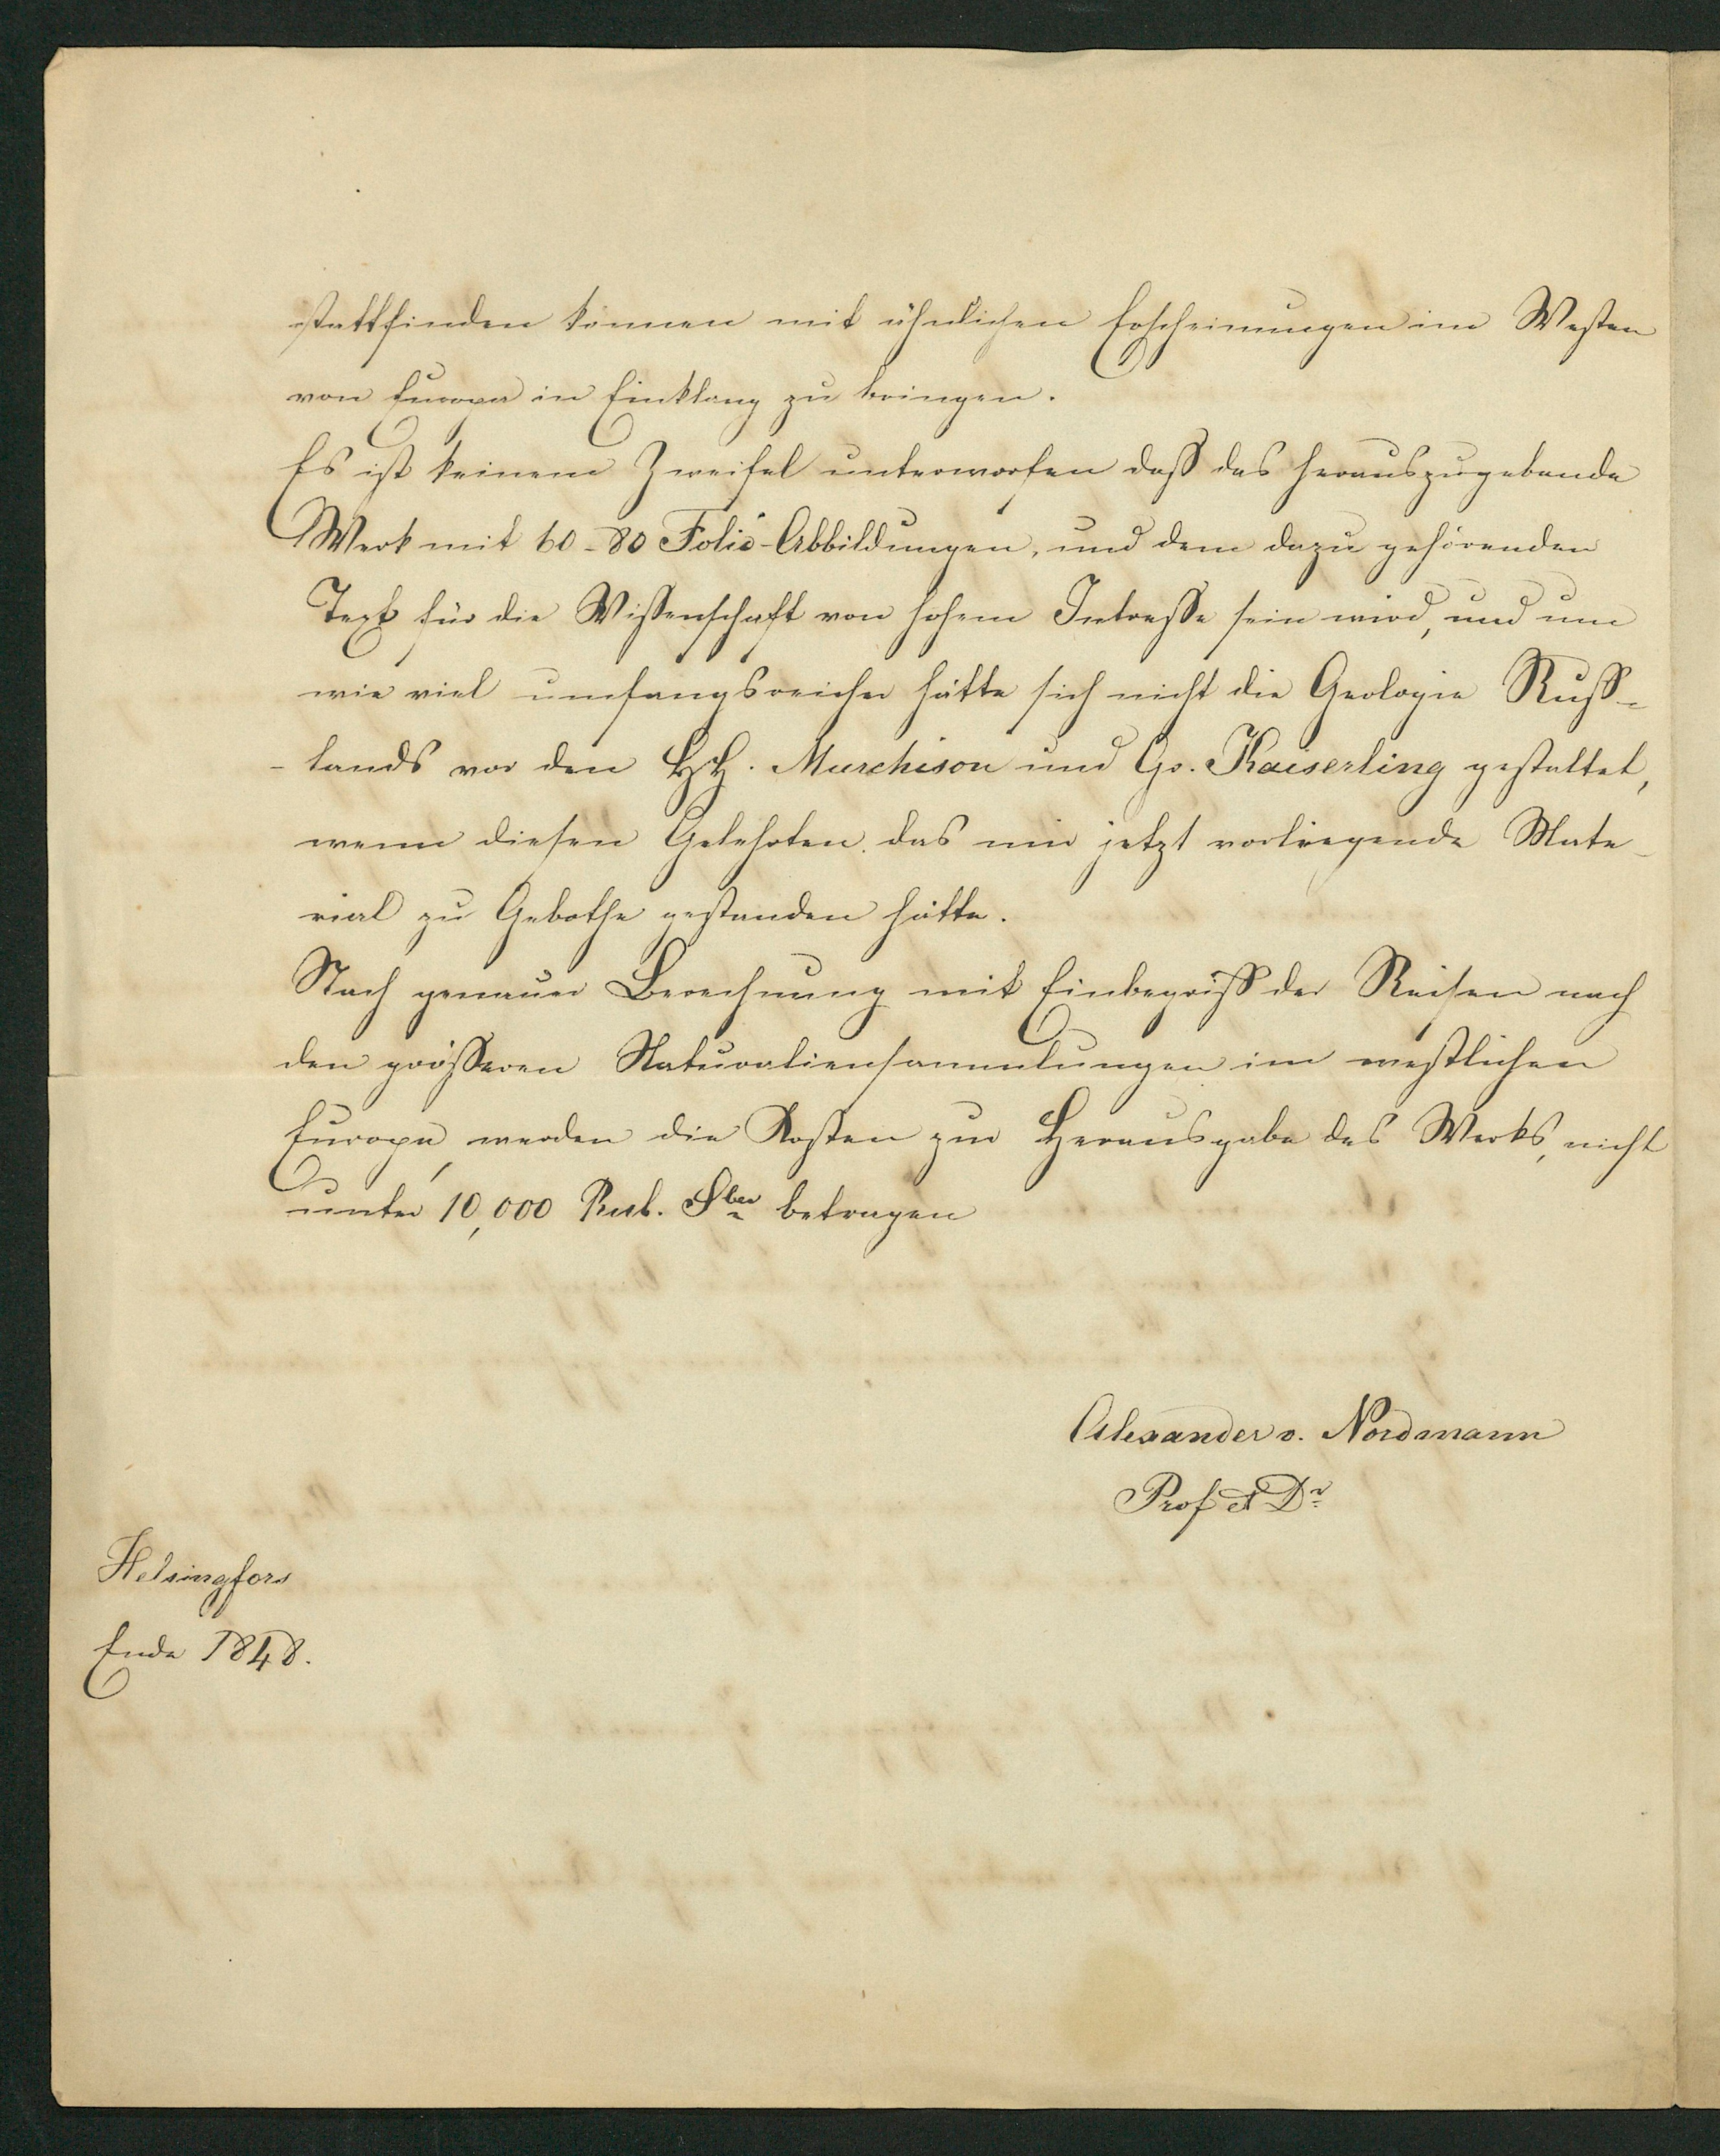 stattfinden können mit ähnlichen Erscheinungen im Westen
von Europa in Einklang zu bringen.
Es ist keinem Zweifel unterworfen dass das herauszugebende
Werk mit 60-80 Folio-Abbildungen, und dem dazu gehörenden
Text für die Wissenschaft von hohem Intresse sein wird, und um
wie viel umfangsreicher hätte sich nicht die Geologie Russ-
-lands vor den HH. Murchison und Gr. Kaiserling gestaltet,
wenn diesen Gelehrten das mir jetzt vorliegende Mate-
rial zu Gebothe gestanden hätte.
Nach genauer Berechnung mit Einbegriff der Reisen nach
den grösseren Naturaliensammlungen im westlichen
Europa, werden die Kosten zur Herausgabe des Werks, nicht
unter 10,000 Rub. Slber betragen
Alexander v. Nordmann
Prof et Dr
Helsingfors
Ende 1848.